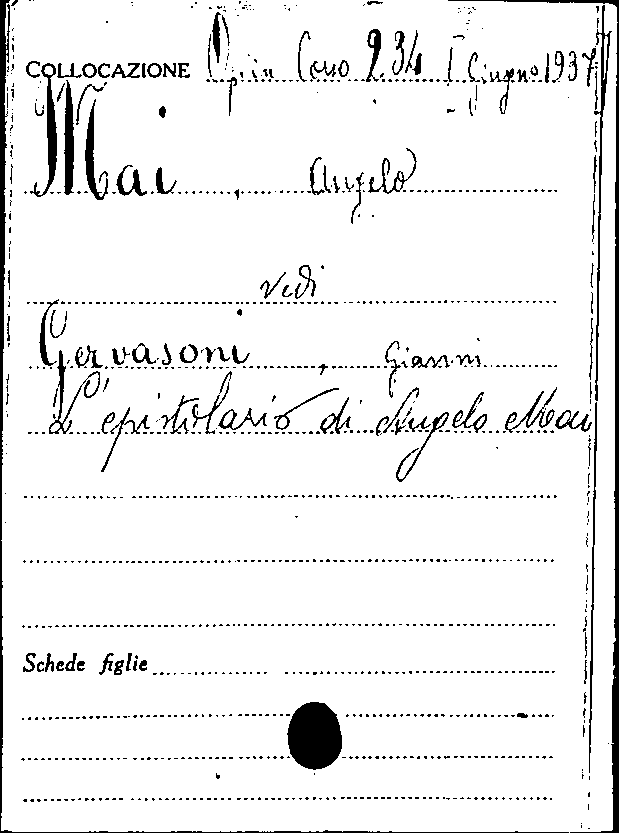 COLLOCAZIONE Op. in Corso 234 I Giugno 1937
Mai, Angelo
vedi
Gervasoni, Gianni
L'epistolario di Angelo Mai
Schede figlie